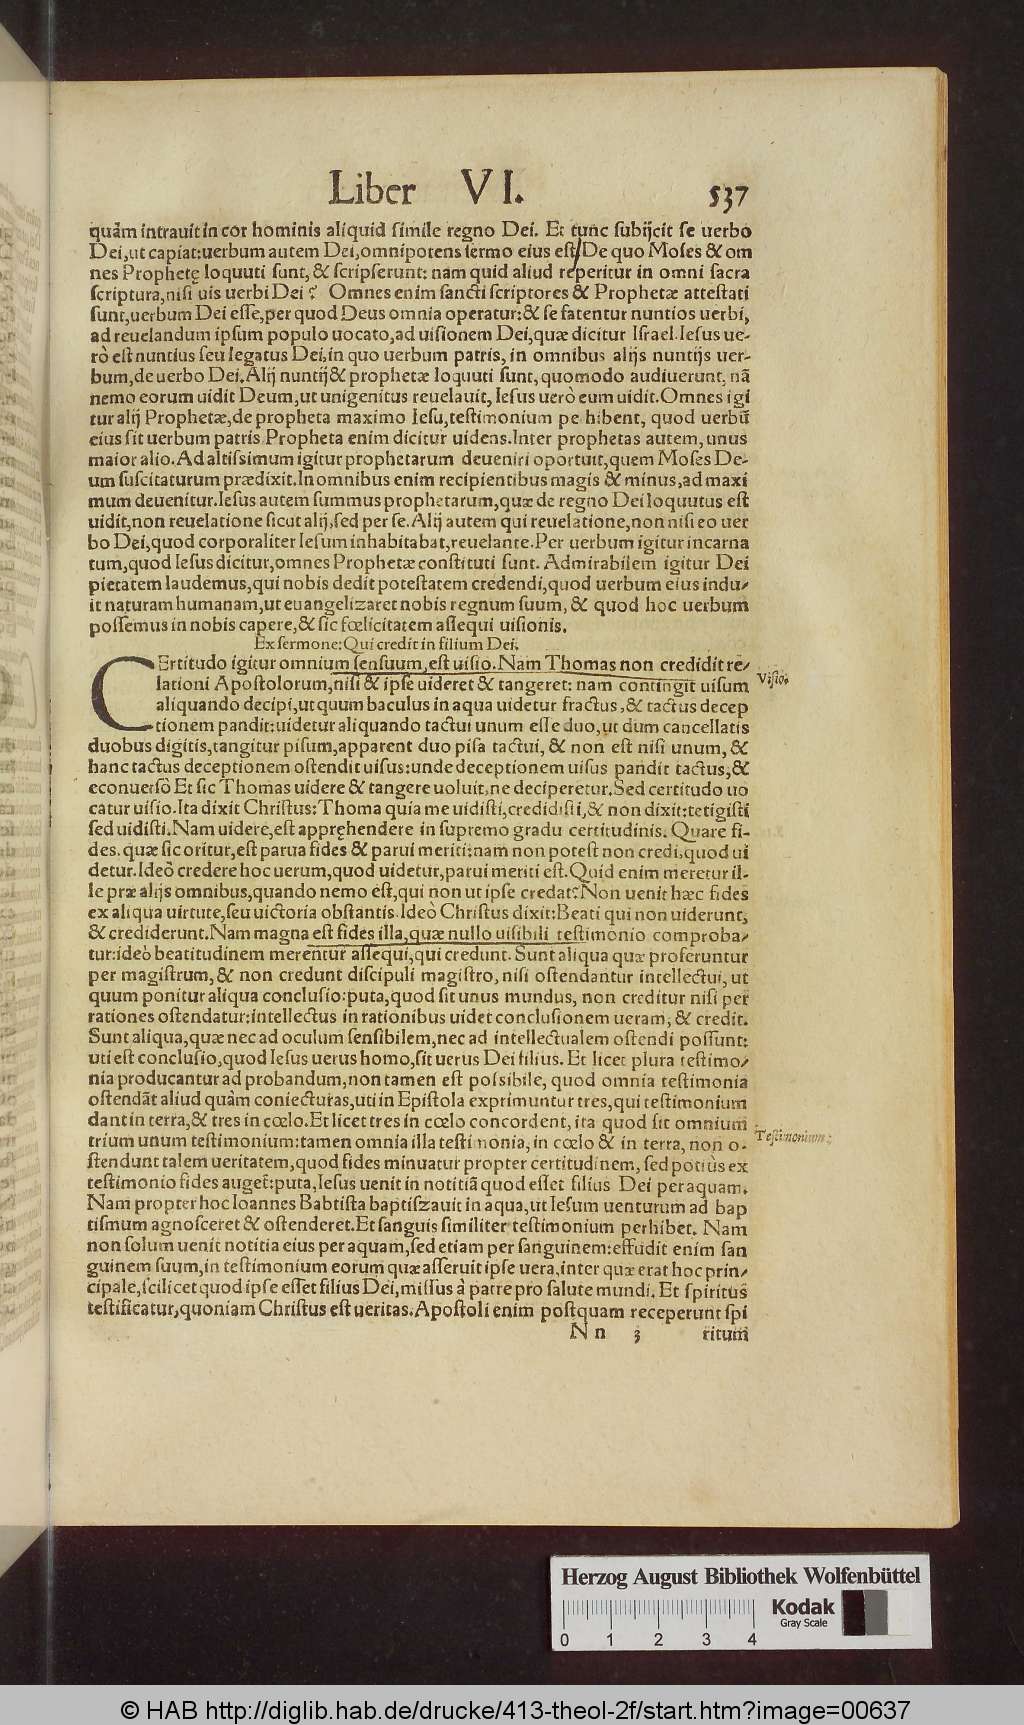 Liber VI. 537
quàm intrauit in cor hominis aliquid simile regno Dei. Et tunc subijcit se uerbo
Dei, ut capiat: uerbum autem Dei, omnipotens sermo eius est. De quo Moses & om
nes Prophetę loquuti sunt, & scripserunt: nam quid aliud reperitur in omni sacra
scriptura, nisi uis uerbi Dei? Omnes enim sancti scriptores & Prophetæ attestati
sunt, uerbum Dei esse, per quod Deus omnia operatur: & se fatentur nuntios uerbi,
ad reuelandum ipsum populo uocato, ad uisionem Dei, quæ dicitur Israel. Iesus ue-
rò est nuntius seu legatus Dei, in quo uerbum patris, in omnibus alijs nuntijs uer-
bum, de uerbo Dei. Alij nuntij & prophetæ loquuti sunt, quomodo audiuerunt, nã
nemo eorum uidit Deum, ut unigenitus reuelauit, Iesus uerò eum uidit. Omnes igi
tur alij Prophetæ, de propheta maximo Iesu, testimonium pe hibent, quod uerbũ
eius sit uerbum patris Propheta enim dicitur uidens. Inter prophetas autem, unus
maior alio. Ad altissimum igitur prophetarum deueniri oportuit, quem Moses De-
um suscitaturum prædixit. In omnibus enim recipientibus magis & minus, ad maxi
mum deuenitur. Iesus autem summus prophetarum, quæ de regno Dei loquutus est
uidit, non reuelatione sicut alij, sed per se. Alij autem qui reuelatione, non nisi eo uer
bo Dei, quod corporaliter Iesum inhabitabat, reuelante. Per uerbum igitur incarna
tum, quod Iesus dicitur, omnes Prophetæ constituti sunt. Admirabilem igitur Dei
pietatem laudemus, qui nobis dedit potestatem credendi, quod uerbum eius indu-
it naturam humanam, ut euangelizaret nobis regnum suum, & quod hoc uerbum
possemus in nobis capere, & sic fœlicitatem assequi uisionis.
Ex sermone: Qui credit in filium Dei.
CErtitudo igitur omnium sensuum, est uisio. Nam Thomas non credidit re-
lationi Apostolorum, nisi & ipse uideret & tangeret: nam contingit uisum
Visio.
aliquando decipi, ut quum baculus in aqua uidetur fractus, & tactus decep
tionem pandit: uidetur aliquando tactui unum esse duo, ut dum cancellatis
duobus digitis, tangitur pisum, apparent duo pisa tactui, & non est nisi unum, &
hanc tactus deceptionem ostendit uisus: unde deceptionem uisus pandit tactus, &
econuersò Et sic Thomas uidere & tangere uoluit, ne deciperetur. Sed certitudo uo
catur uisio. Ita dixit Christus: Thoma quia me uidisti, credidisti, & non dixit: tetigisti
sed uidisti. Nam uidere, est appręhendere in supremo gradu certitudinis. Quare fi-
des, quæ sic oritur, est parua fides & parui meriti: nam non potest non credi, quod ui
detur. Ideò credere hoc uerum, quod uidetur, parui meriti est. Quid enim meretur il-
le præ alijs omnibus, quando nemo est, qui non ut ipse credat? Non uenit hæc fides
ex aliqua uirtute, seu uictoria obstantis. Ideò Christus dixit: Beati qui non uiderunt,
& crediderunt. Nam magna est fides illa, quæ nullo uisibili testimonio comproba-
tur: ideò beatitudinem merentur assequi, qui credunt. Sunt aliqua quæ proferuntur
per magistrum, & non credunt discipuli magistro, nisi ostendantur intellectui, ut
quum ponitur aliqua conclusio: puta, quod sit unus mundus, non creditur nisi per
rationes ostendatur: intellectus in rationibus uidet conclusionem ueram, & credit.
Sunt aliqua, quæ nec ad oculum sensibilem, nec ad intellectualem ostendi possunt:
uti est conclusio, quod Iesus uerus homo, sit uerus Dei filius. Et licet plura testimo-
nia producantur ad probandum, non tamen est possibile, quod omnia testimonia
ostendãt aliud quàm coniecturas, uti in Epistola exprimuntur tres, qui testimonium
dant in terra, & tres in cœlo. Et licet tres in cœlo concordent, ita quod sit omnium
trium unum testimonium: tamen omnia illa testimonia, in cœlo & in terra, non o-
Testimonium:
stendunt talem ueritatem, quod fides minuatur propter certitudinem, sed potiùs ex
testimonio fides auget: puta, Iesus uenit in notitiã quod esset filius Dei per aquam.
Nam propter hoc Ioannes Babtista baptiszauit in aqua, ut Iesum uenturum ad bap
tismum agnosceret & ostenderet. Et sanguis similiter testimonium perhibet. Nam
non solum uenit notitia eius per aquam, sed etiam per sanguinem: effudit enim san
guinem suum, in testimonium eorum quæ asseruit ipse uera, inter quæ erat hoc prin-
cipale, scilicet quod ipse esset filius Dei, missus à patre pro salute mundi. Et spiritus
testificatur, quoniam Christus est ueritas. Apostoli enim postquam receperunt spi
Nn 3 ritum
Herzog August Bibliothek Wolfenbüttel
0 1 2 3 4
Kodak
Gray Scale
© HAB http://diglib.hab.de/drucke/413-theol-2f/start.htm?image=00637